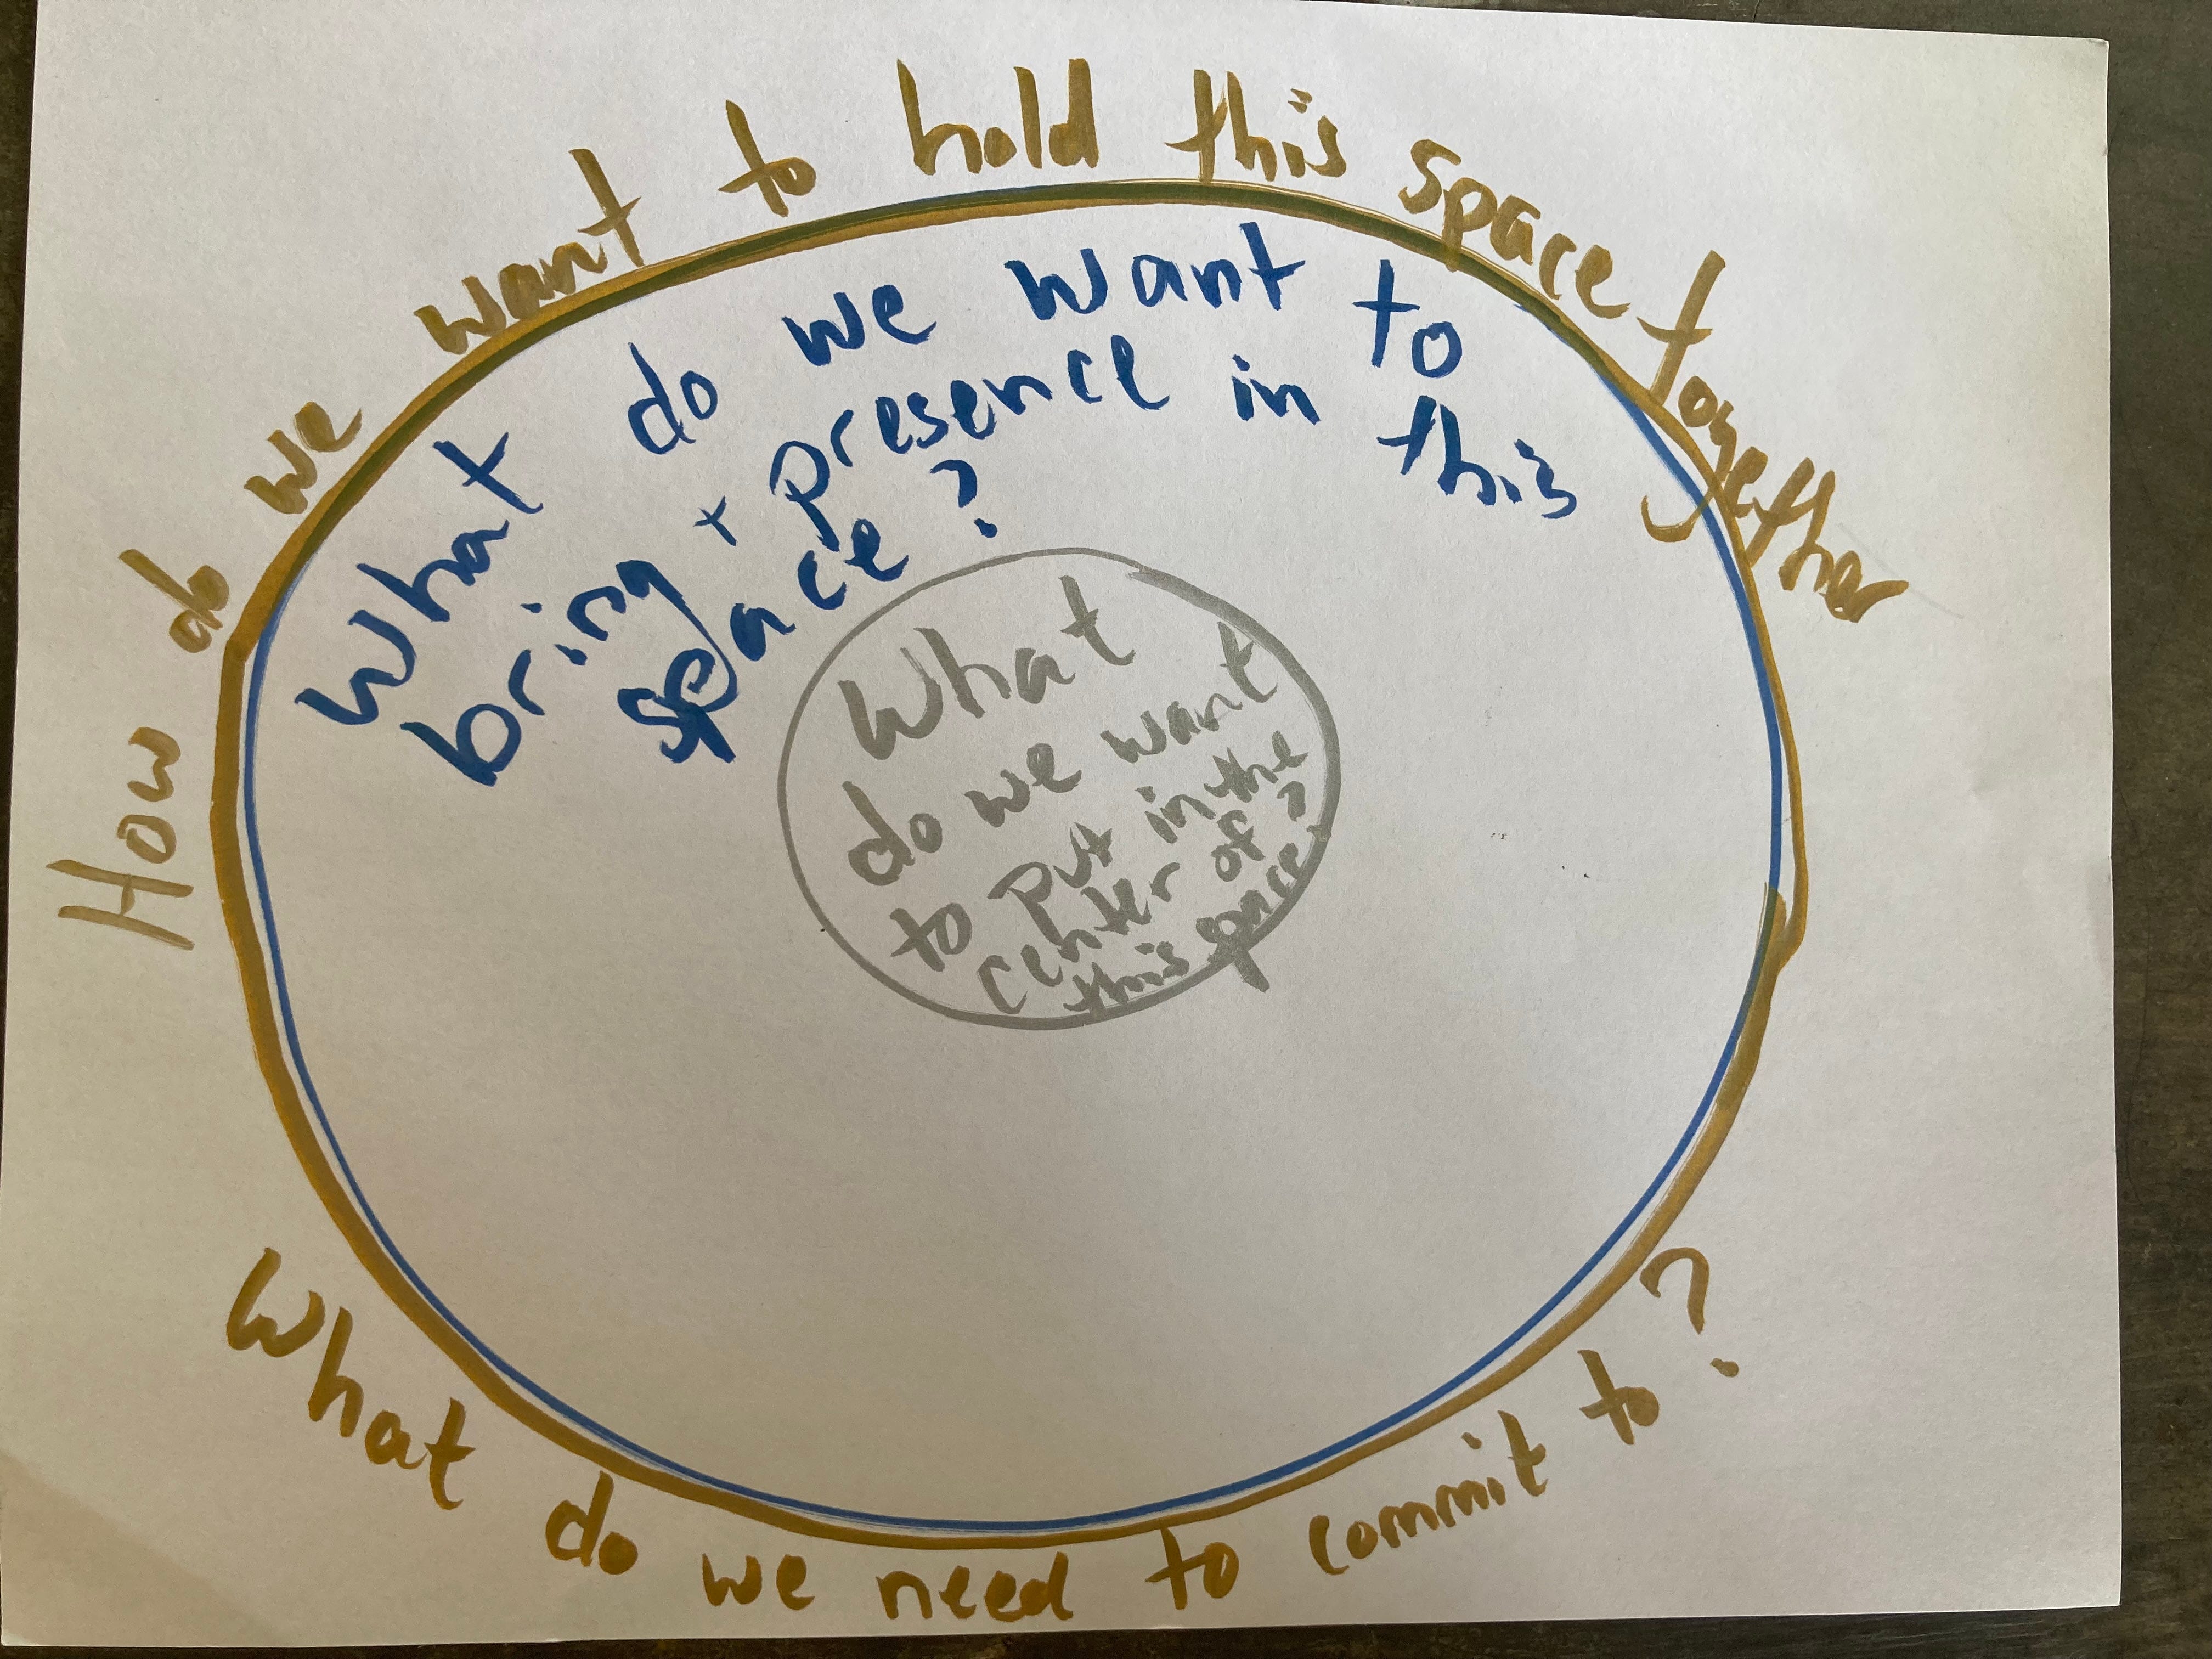 How do we want to hold this space together
What do we want to
bring + presence in this
space?
What
do we want
to put in the
center of
this space?
What do we need to commit to?